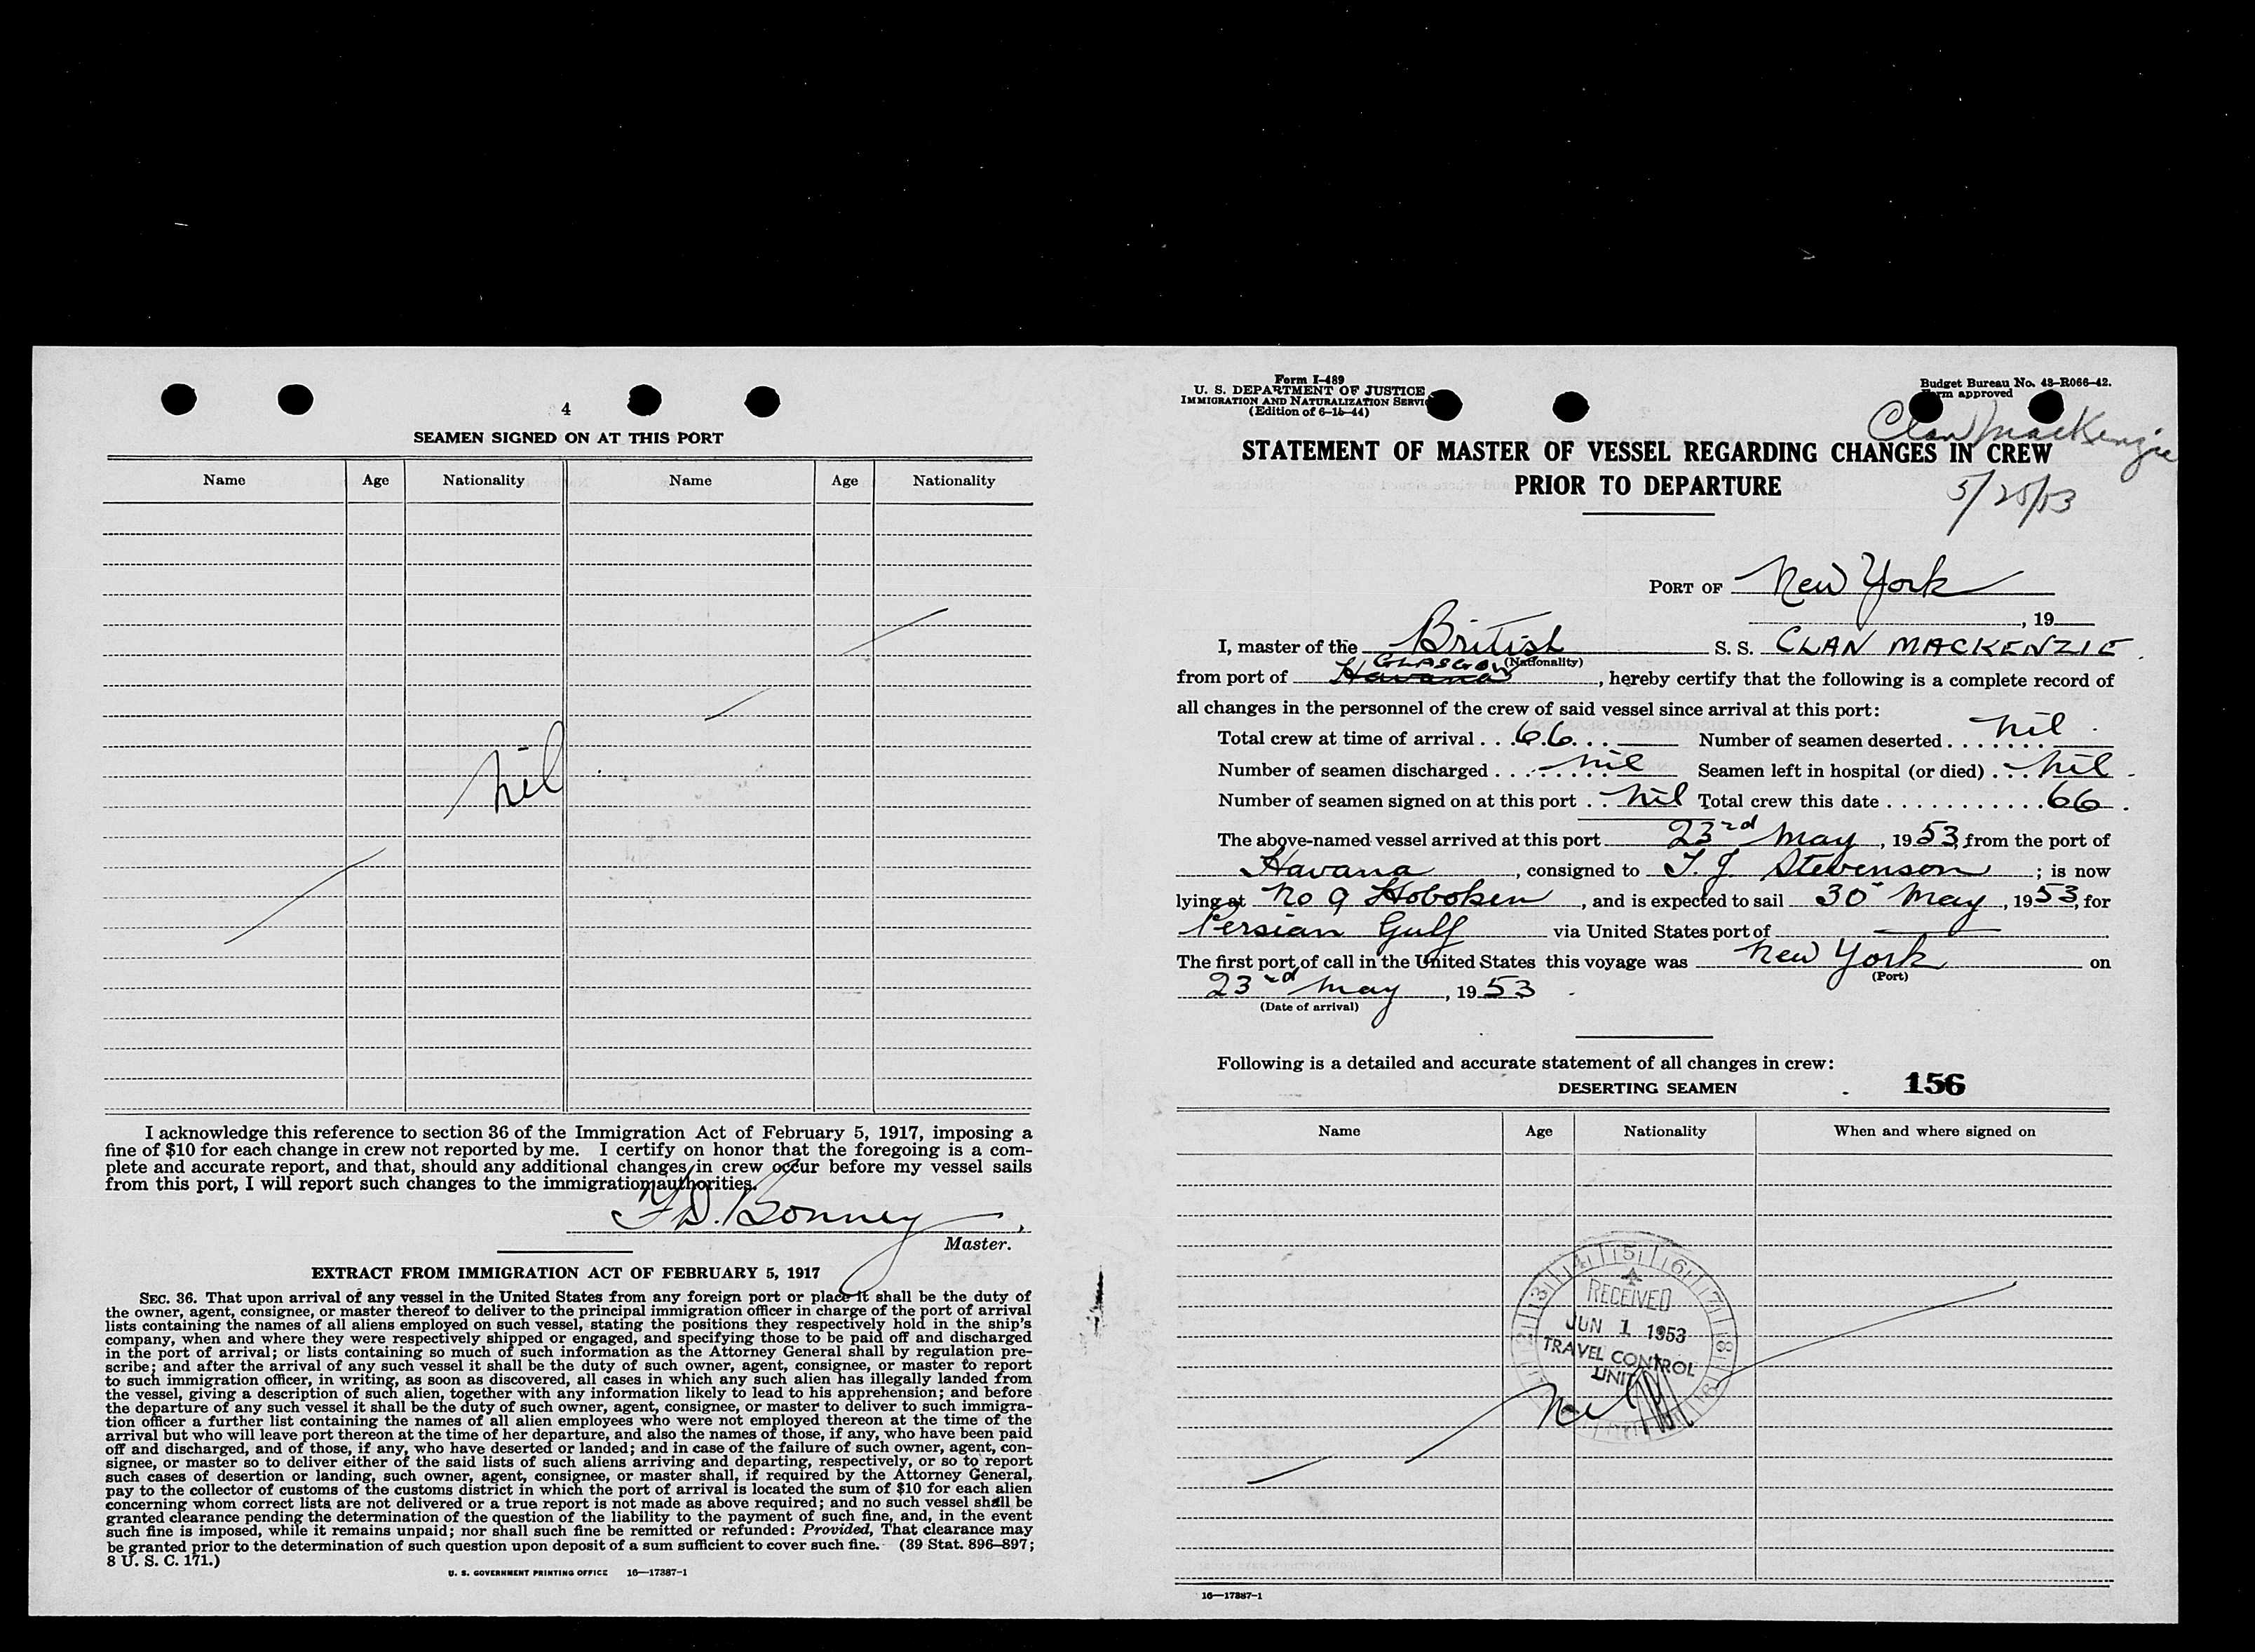 4
SEAMEN SIGNED ON AT THIS PORT
Name Age Nationality Name Age Nationality
nil
I acknowledge this reference to section 36 of the Immigration Act of February 5, 1917, imposing a
fine of $10 for each change in crew not reported by me. I certify on honor that the foregoing is a com-
plete and accurate report, and that, should any additional changes in crew occur before my vessel sails
from this port, I will report such changes to the immigration authorities.
F. D. Bonney,
Master.
EXTRACT FROM IMMIGRATION ACT OF FEBRUARY 5, 1917
SEC. 36. That upon arrival of any vessel in the United States from any foreign port or place it shall be the duty of
the owner, agent, consignee, or master thereof to deliver to the principal immigration officer in charge of the port of arrival
lists containing the names of all aliens employed on such vessel, stating the positions they respectively hold in the ship's
company, when and where they were respectively shipped or engaged, and specifying those to be paid off and discharged
in the port of arrival; or lists containing so much of such information as the Attorney General shall by regulation pre-
scribe; and after the arrival of any such vessel it shall be the duty of such owner, agent, consignee, or master to report
to such immigration officer, in writing, as soon as discovered, all cases in which any such alien has illegally landed from
the vessel, giving a description of such alien, together with any information likely to lead to his apprehension; and before
the departure of any such vessel it shall be the duty of such owner, agent, consignee, or master to deliver to such immigra-
tion officer a further list containing the names of all alien employees who were not employed thereon at the time of the
arrival but who will leave port thereon at the time of her departure, and also the names of those, if any, who have been paid
off and discharged, and of those, if any, who have deserted or landed; and in case of the failure of such owner, agent, con-
signee, or master so to deliver either of the said lists of such aliens arriving and departing, respectively, or so to report
such cases of desertion or landing, such owner, agent, consignee, or master shall, if required by the Attorney General,
pay to the collector of customs of the customs district in which the port of arrival is located the sum of $10 for each alien
concerning whom correct lists are not delivered or a true report is not made as above required; and no such vessel shall be
granted clearance pending the determination of the question of the liability to the payment of such fine, and, in the event
such fine is imposed, while it remains unpaid; nor shall such fine be remitted or refunded: Provided, That clearance may
be granted prior to the determination of such question upon deposit of a sum sufficient to cover such fine. (39 Stat. 896–897;
8 U. S. C. 171.)
U. S. GOVERNMENT PRINTING OFFICE 16—17387-1
Form I-489
U. S. DEPARTMENT OF JUSTICE
IMMIGRATION AND NATURALIZATION SERVI
(Edition of 6-15-44)
Budget Bureau No. 43-R066-42.
rm approved
Clan MacKenzie
STATEMENT OF MASTER OF VESSEL REGARDING CHANGES IN CREW
PRIOR TO DEPARTURE
5/25/53
PORT OF New York
, 19
I, master of the British S. S. CLAN MACKENZIE.
(Nationality)
GLASGOW
from port of Havana, hereby certify that the following is a complete record of
all changes in the personnel of the crew of said vessel since arrival at this port:
Total crew at time of arrival . . 66 . . . Number of seamen deserted . . . . . . . nil
Number of seamen discharged . . . . . . . nil Seamen left in hospital (or died) . . . nil
Number of seamen signed on at this port . . nil Total crew this date . . . . . . . . . . . 66
The above-named vessel arrived at this port 23rd May, 1953, from the port of
Havana, consigned to T. J. Stevenson; is now
lying at No 9 Hoboken, and is expected to sail 30 May, 1953, for
Persian Gulf via United States port of
The first port of call in the United States this voyage was New York on
(Port)
23rd May, 1953
(Date of arrival)
Following is a detailed and accurate statement of all changes in crew:
DESERTING SEAMEN 156
Name Age Nationality When and where signed on
RECEIVED
JUN 1 1953
TRAVEL CONTROL
UNIT
Nil
16—17387-1